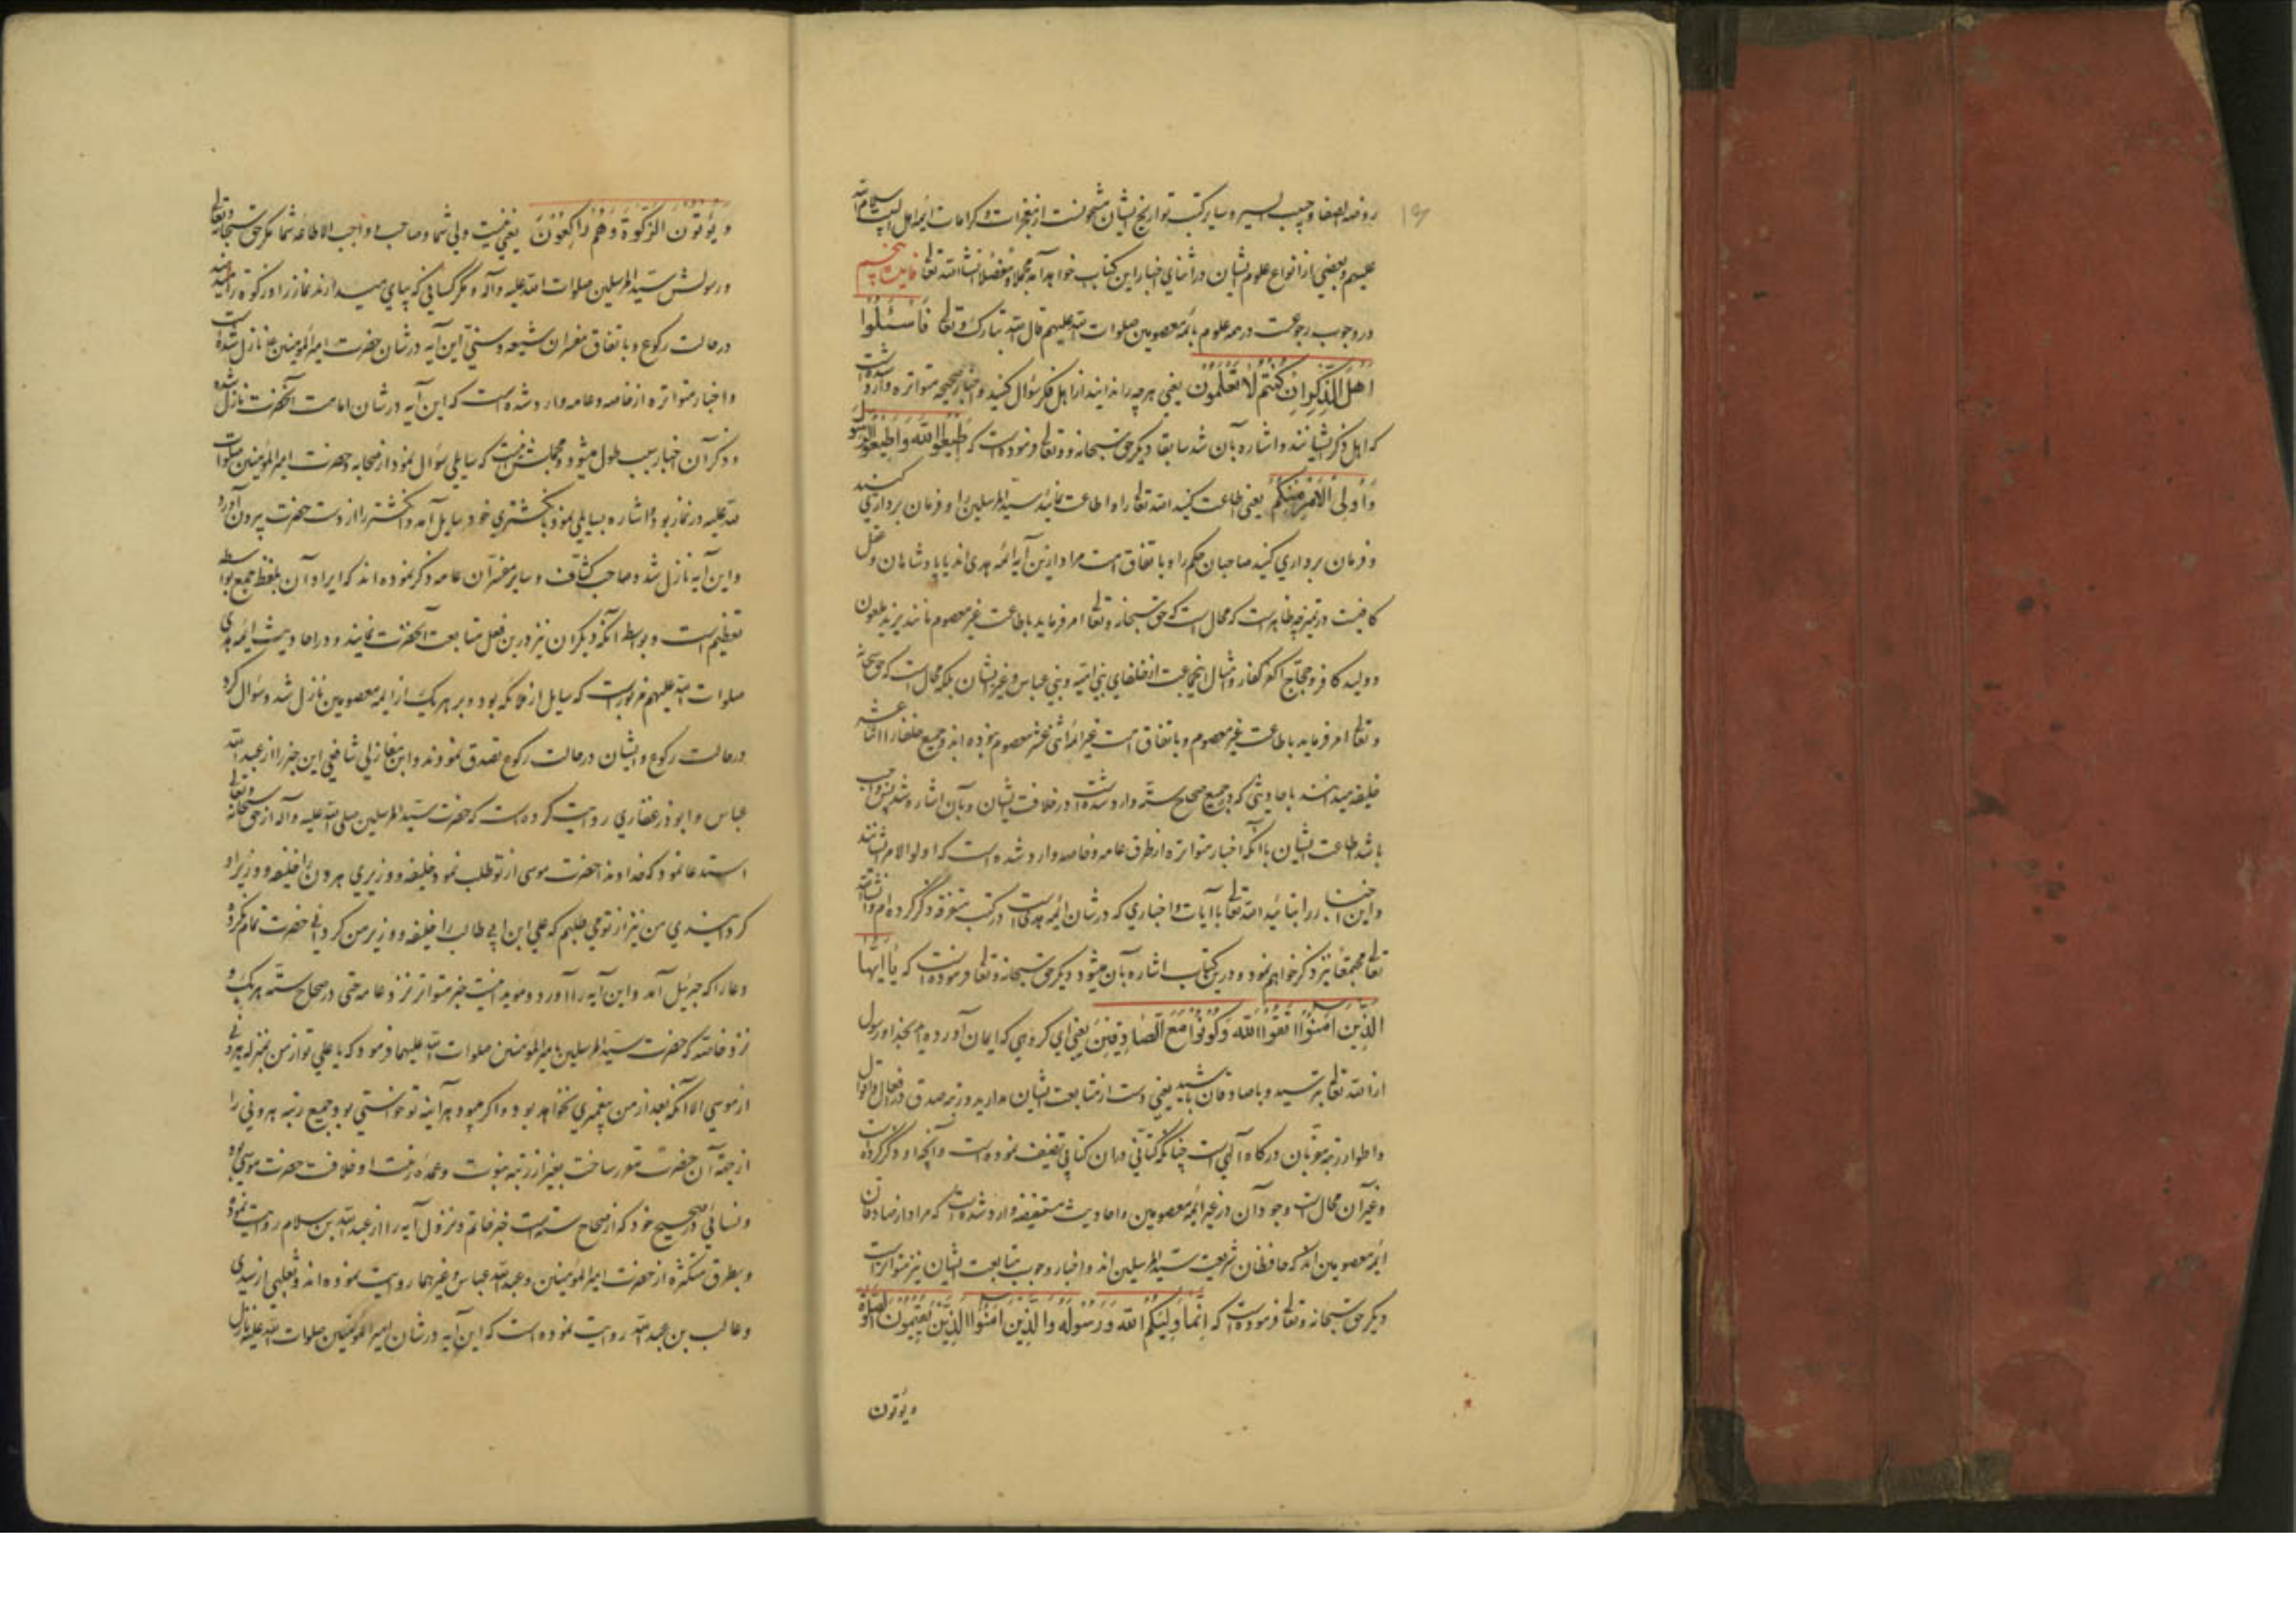 روضه الصفا و حبیب السیر و سایر کتب تواریخ ایشان مشحونست از معجزات و کرامات ائمه اهل البیت سلام الله
علیهم و بعضی از انواع علوم ایشان در اثنای اخبار این کتاب خواهد آمد مجملا و مفصلا انشاء الله تعالی فایده پنجم
در وجوب رجوعست در همه علوم بائمه معصومین صلوات الله علیهم قال الله تبارک و تعالی فَاسْئَلُوا
اَهْلَ الذِّکْرِ اِنْ کُنْتُمْ لَا تَعْلَمُونَ یعنی هر چه را ندانید از اهل ذکر سؤال کنید و اخبار صحیحه متواتره وارد شده است
که اهل ذکر ایشانند و اشاره بآن شد سابقا دیگر حق سبحانه و تعالی فرموده است که اَطِیعُوا اللّهَ وَ اَطِیعُوا الرَّسُولَ
وَ اُولِی الْاَمْرِ مِنْکُمْ یعنی اطاعت کنید الله تعالی را و اطاعت نمائید سید المرسلین را و فرمان برداری کنید
و فرمان برداری کنید صاحبان حکم را و باتفاق امت مراد ازین آیه ائمه هدی اند یا پادشاهان و عقل
کافیست در تمیز چه ظاهرست که محال است که حق سبحانه و تعالی امر فرماید باطاعت غیر معصوم مانند یزید ملعون
و ولید کافر و حجاج اکفر کفار و امثال این جماعت از خلفای بنی امیه و بنی عباس و غیر ایشان بلکه محال است که حق سبحانه
و تعالی امر فرماید باطاعت غیر معصوم و باتفاق امت غیر ائمه اثنی عشر معصوم نبوده اند و جمیع خلفا را اثنا عشر
خلیفه میدانند باحادیثی که در جمیع صحاح سته وارد شده است در خلافت ایشان و بآن اشاره شد پس واجب
باشد اطاعت ایشان با آنکه اخبار متواتره از طرق عامه و خاصه وارد شده است که اولو الامر ایشانند
و این اخبار را بتائید الله تعالی با آیات و اخباری که در شان ائمه هدی است در کتب متفرقه ذکر کرده ام و انشاء الله
تعالی مجتمعا نیز ذکر خواهم نمود و درین کتاب اشاره بآن میشود دیگر حق سبحانه و تعالی فرموده است که یَا اَیُّهَا
الَّذِینَ آمَنُوا اتَّقُوا اللّهَ وَ کُونُوا مَعَ الصَّادِقِینَ یعنی ای گروهی که ایمان آورده اید بخدا و رسول
از الله تعالی بترسید و با صادقان باشید یعنی دست از متابعت ایشان مدارید و رتبه صدق در افعال و اقوال
و اطوار رتبه مقربان درگاه آلهی است چنانکه در آن کتابی تصنیف نموده است و آنچه او ذکر کرده است
و غیر آن محال است وجود آن در غیر ائمه معصومین و احادیث مستفیضه وارد شده است که مراد از صادقان
ائمه معصومین اند که حافظان شریعت سید المرسلین اند و اخبار وجوب متابعت ایشان نیز متواتر است
دیگر حق سبحانه و تعالی فرموده است که اِنَّمَا وَلِیُّکُمُ اللّهُ وَ رَسُولُهُ وَ الَّذِینَ آمَنُوا الَّذِینَ یُقِیمُونَ الصَّلوةَ
ویؤتون
وَ یُؤْتُونَ الزَّکوةَ وَ هُمْ رَاکِعُونَ یعنی نیست ولی شما و صاحب و واجب الاطاعه شما مگر حق سبحانه و تعالی
و رسولش سید المرسلین صلوات الله علیه و آله و مگر کسانی که بپای میدارند نماز را و زکوة را میدهند
در حالت رکوع و باتفاق مفسران شیعه و سنی این آیه در شان حضرت امیر المؤمنین ع نازل شده است
و اخبار متواتره از خاصه و عامه وارد شده است که این آیه در شان امامت آنحضرت نازل شده
و ذکر آن اخبار سبب طول میشود و مجملش اینست که سایلی سؤال نمود از صحابه و حضرت امیر المؤمنین صلوات
الله علیه در نماز بود و اشاره بسایلی نمود بانگشتری خود سایل آمد و انگشتر را از دست حضرت بیرون آورد
و این آیه نازل شد و صاحب کشاف و سایر مفسران عامه ذکر نموده اند که ایراد آن بلفظ جمع بواسطه
تعظیم است و بواسطه آنکه دیگران نیز درین فعل متابعت آنحضرت نمایند و در احادیث ائمه هدی
صلوات الله علیهم مزبورست که سایل از ملائکه بود و بر هر یک از ایمه معصومین نازل شد و سؤال کرد
در حالت رکوع و ایشان در حالت رکوع تصدق نمودند و ابن مغازلی شافعی این خبر را از عبد الله
عباس و ابوذر غفاری روایت کرده است که حضرت سید المرسلین صلی الله علیه و آله از حق سبحانه و تعالی
استدعا نمود که خداوندا حضرت موسی از تو طلب نمود خلیفه و وزیری هرون را خلیفه و وزیر او
گردانیدی من نیز از تو می طلبم که علی ابن ابی طالب را خلیفه و وزیر من گردانی حضرت تمام نکرده
دعا را که جبرئیل آمد و این آیه را آورد و مؤید اینست خبر متواتر نزد عامه حتی در صحاح سته هر یک و
نزد خاصه که حضرت سید المرسلین بامیر المؤمنین صلوات الله علیهما فرمود که یا علی تو از من بمنزله هرونی
از موسی الا آنکه بعد از من پیغمبری نخواهد بود و اگر میبود هر آینه تو خواستی بود جمیع رتبه هرونی را
از جهة آن حضرت مقرر ساخت بغیر از رتبه نبوت و عمده رتبت او خلافت حضرت موسی بوده
و نسائی در صحیح خود که از صحاح سته است خبر خاتم و نزول آیه را از عبد الله بن سلام روایت نموده
و بطرق متکثره از حضرت امیر المؤمنین و عبد الله عباس و غیرهما روایت نموده اند و ثعلبی از سدی
و غالب بن عبد الله روایت نموده است که این آیه در شان امیر المؤمنین صلوات الله علیه نازل